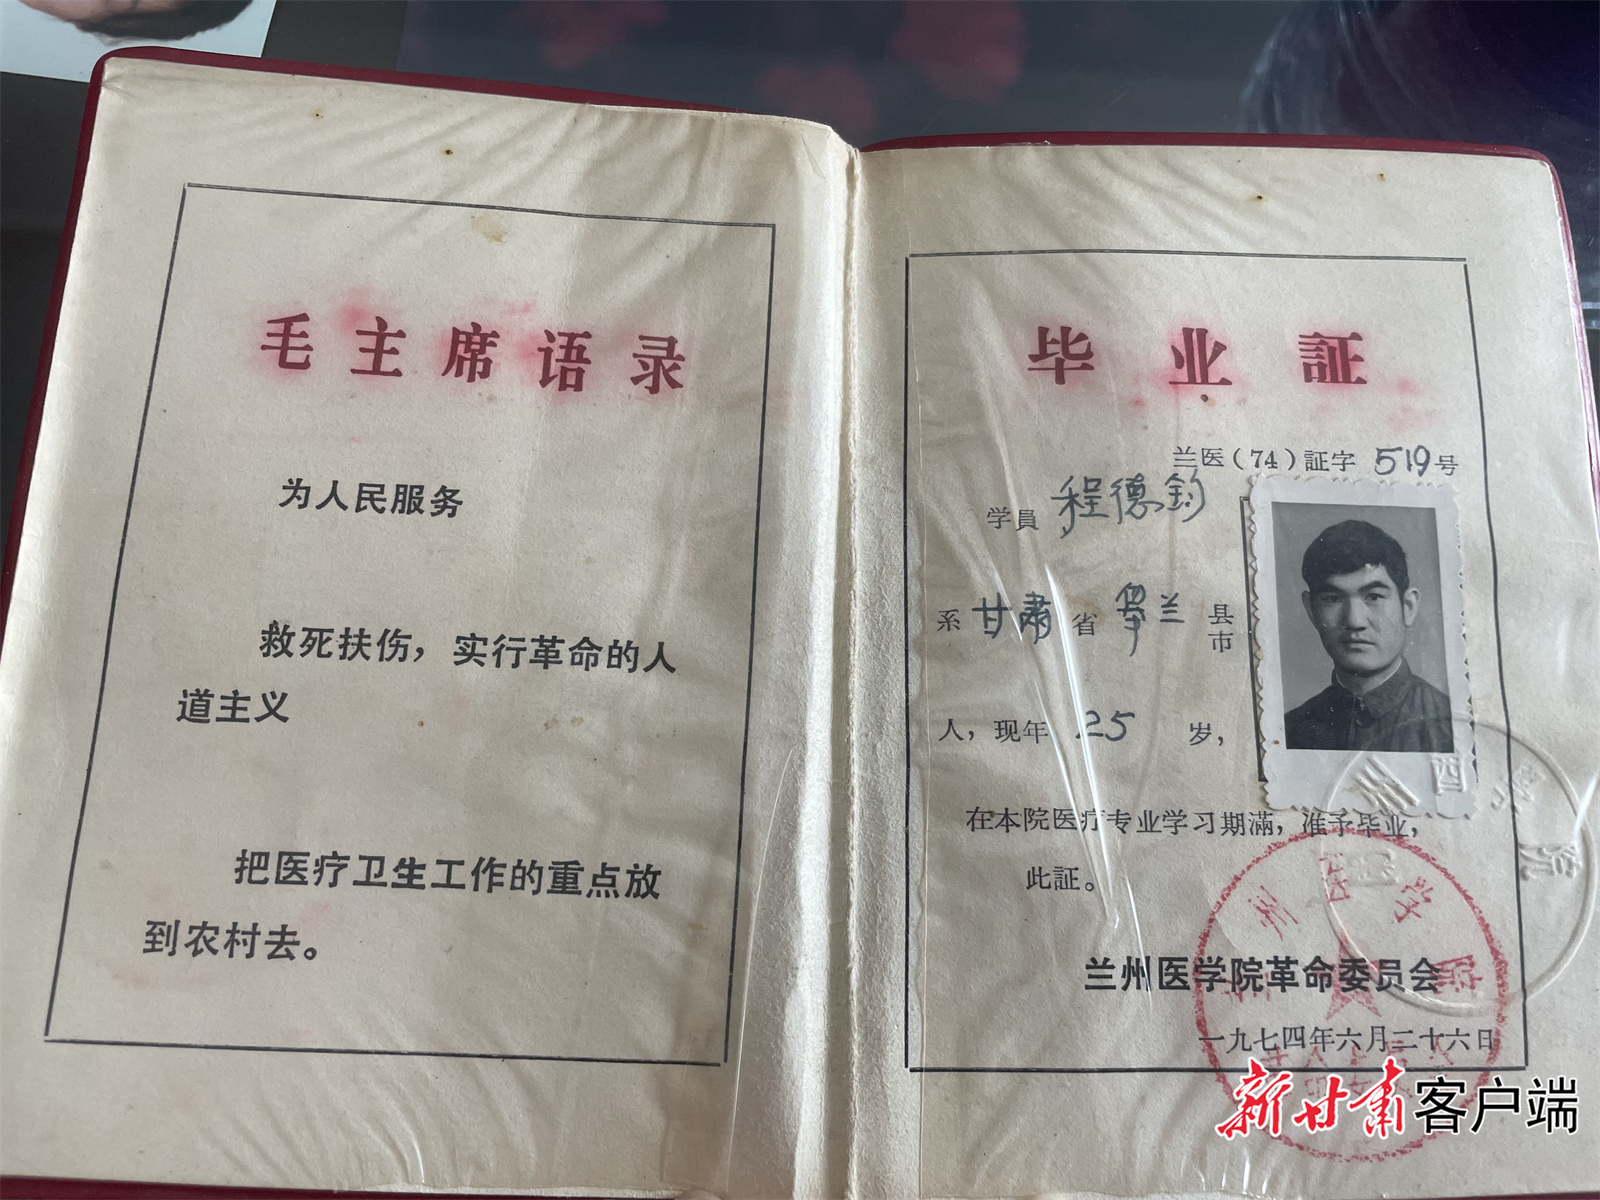 毛主席语录
为人民服务
救死扶伤，实行革命的人
道主义
把医疗卫生工作的重点放
到农村去。
毕业証
兰医(74)証字 519号
学員 程德钧
系甘肃省皋兰县市
人，现年 25 岁，
在本院医疗专业学习期滿，准予毕业，
此証。
兰州医学院革命委员会
一九七四年六月二十六日
新甘肃客户端